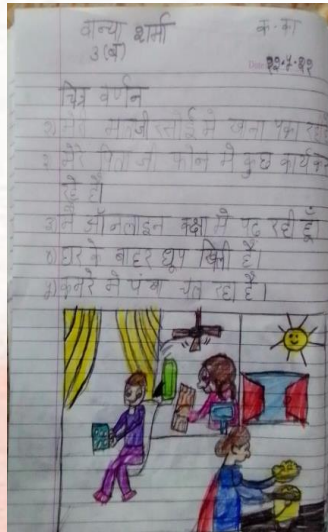 वान्या शर्मा क. का
3(ब) २२.7.२१
चित्र वर्णन
मेरी रसोई मे खाना पका
२ मेरे पिता जी फोन मे कुछ कार्य
है।
३ मै ऑनलाइन कक्षा मे पढ रही हूँ
घर के बाहर धूप खिली है।
कमरे मे पंखा चल रहा है।